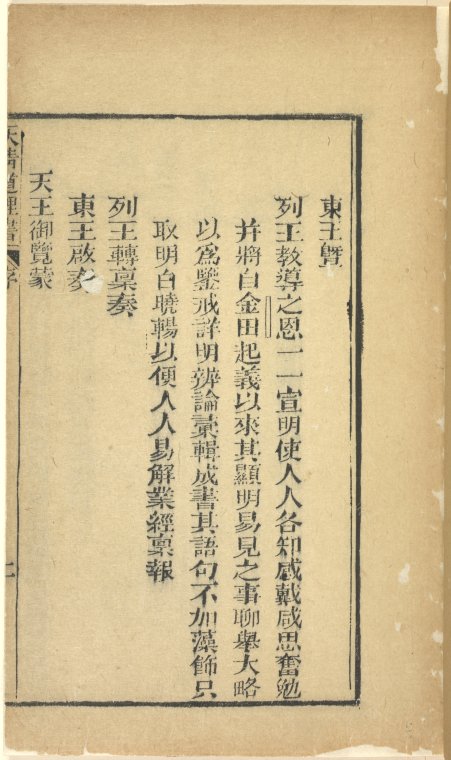 東王曁
列王教導之恩一一宣明使人人各知感戴咸思奮勉
并將自金田起義以來其顯明易見之事聊舉大略
以爲鑒戒詳明辨論彙輯成書其語句不加藻飾只
取明白曉暢以便人人易解業經稟報
列王轉稟奏
東王啟奏
天王御覽蒙
天情道理書 序
二